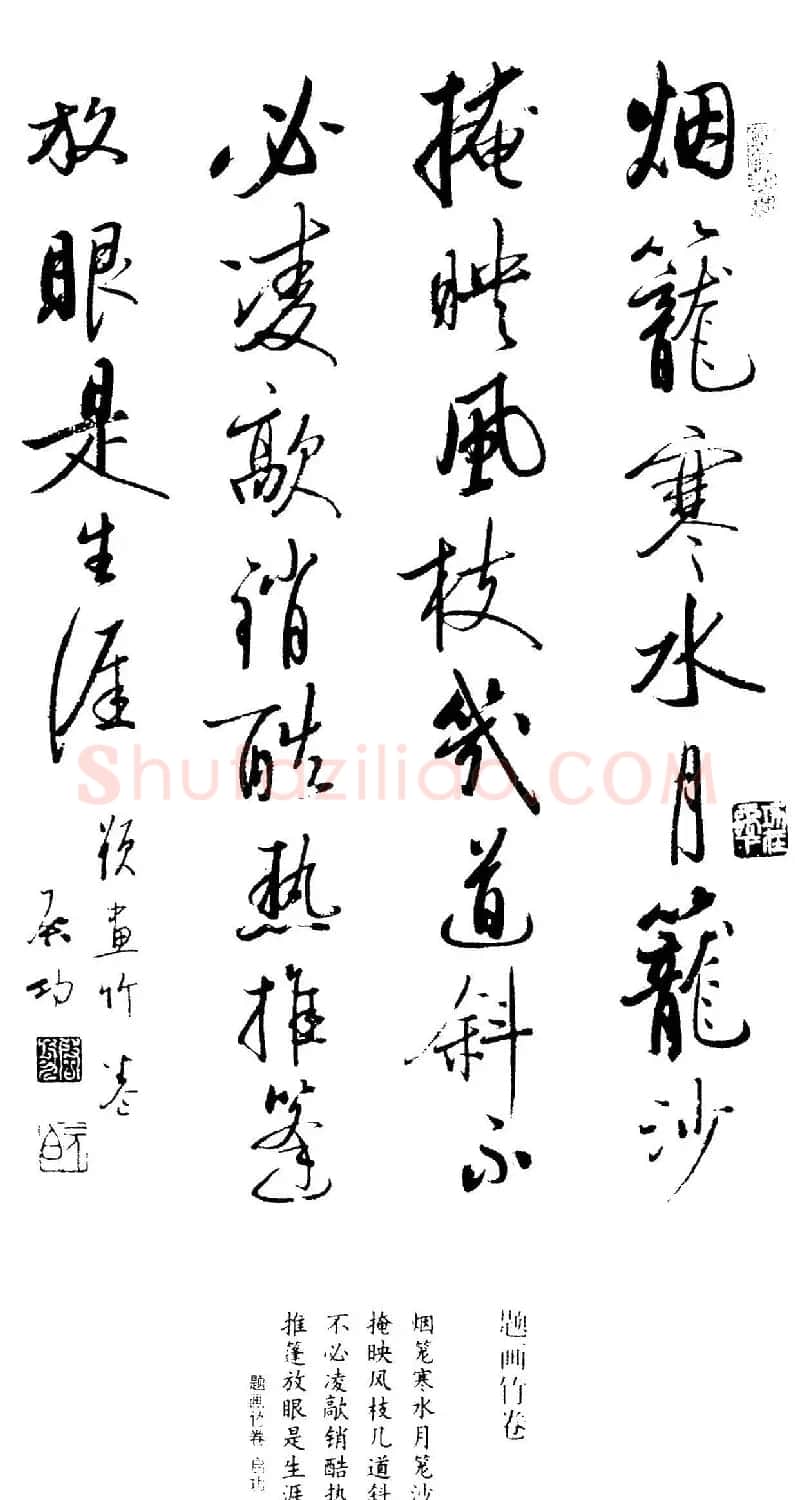 烟籠寒水月籠沙
掩映風枝幾道斜不
必凌歊銷酷热推篷
放眼是生涯
題畫竹卷
启功
Shufaziliao.COM
题画竹卷
烟笼寒水月笼沙
掩映风枝几道斜
不必凌歊销酷热
推篷放眼是生涯
题画竹卷 启功